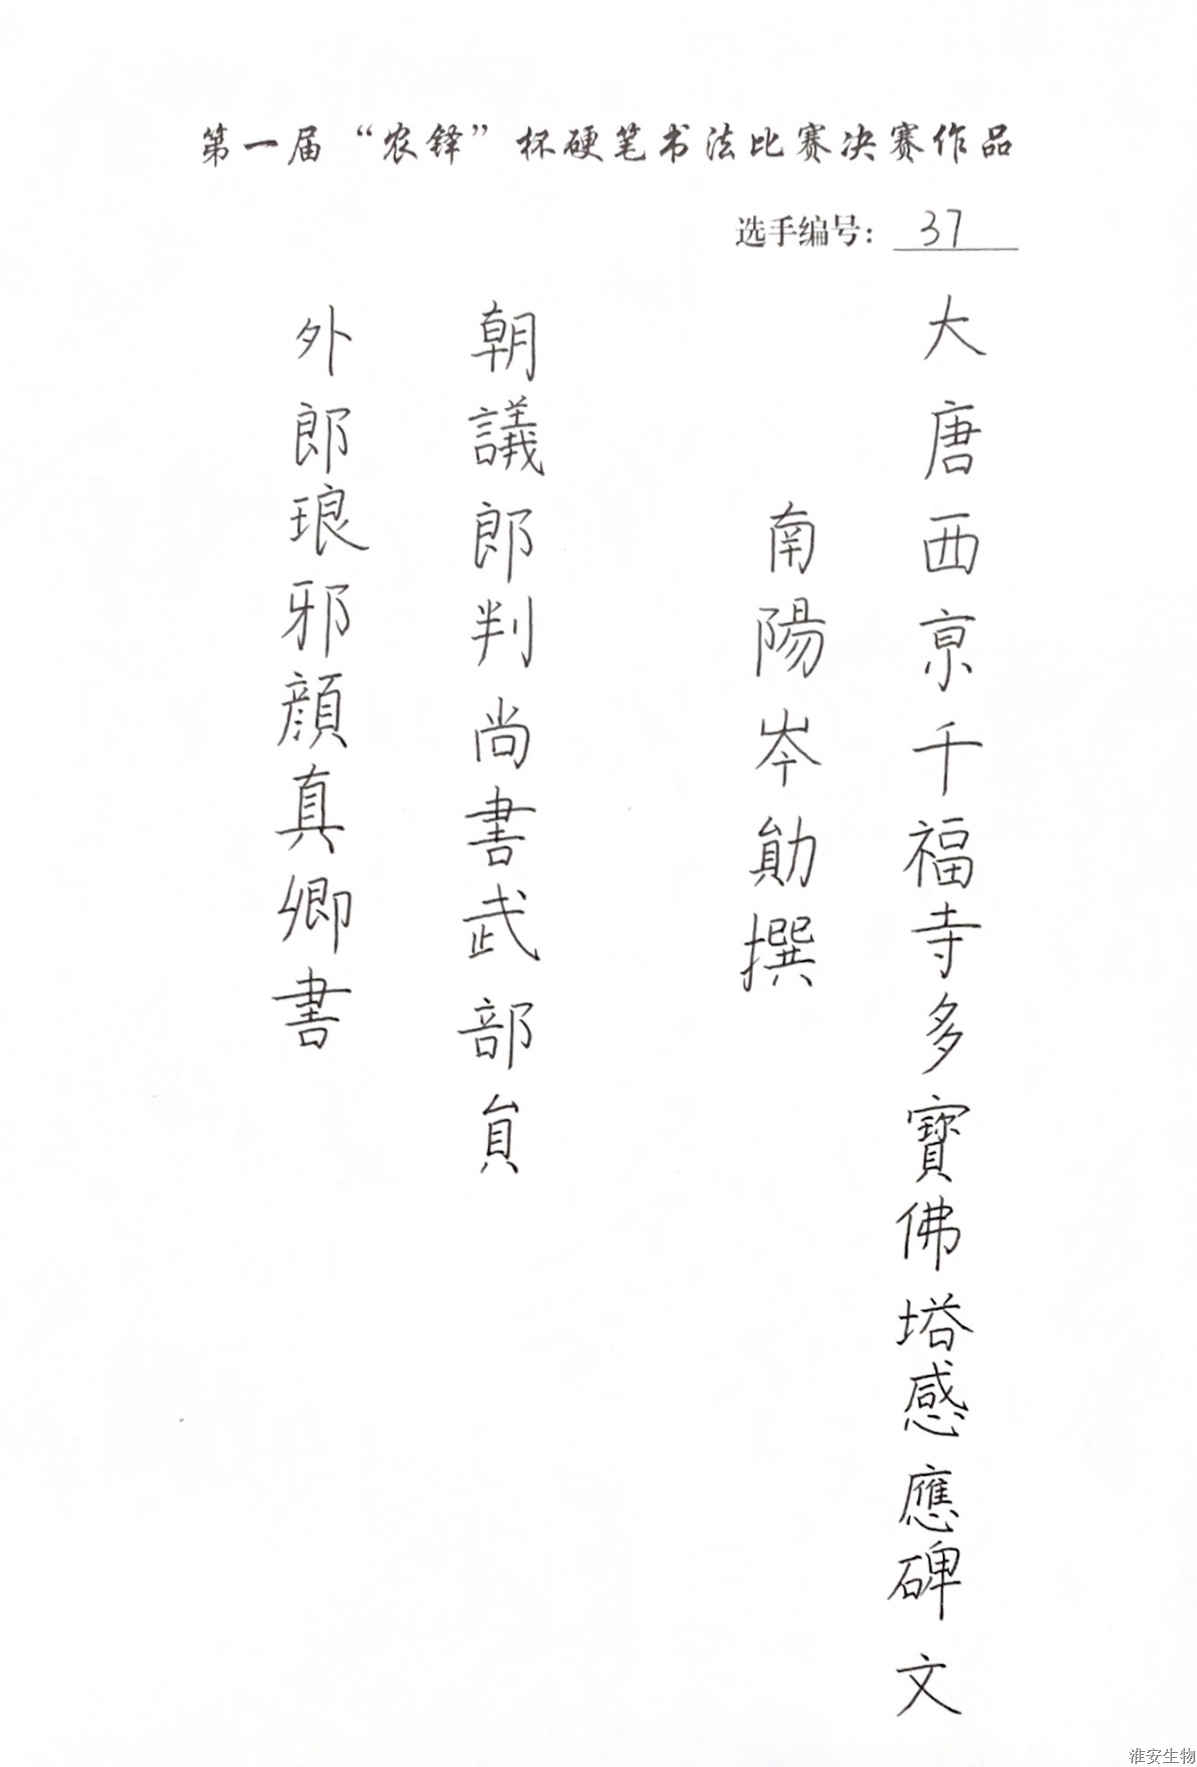 第一届“农铎”杯硬笔书法比赛决赛作品
选手编号：37
大唐西亰千福寺多寶佛塔感應碑文
南陽岑勛撰
朝議郎判尚書武部貟
外郎琅邪顔真卿書
淮安生物